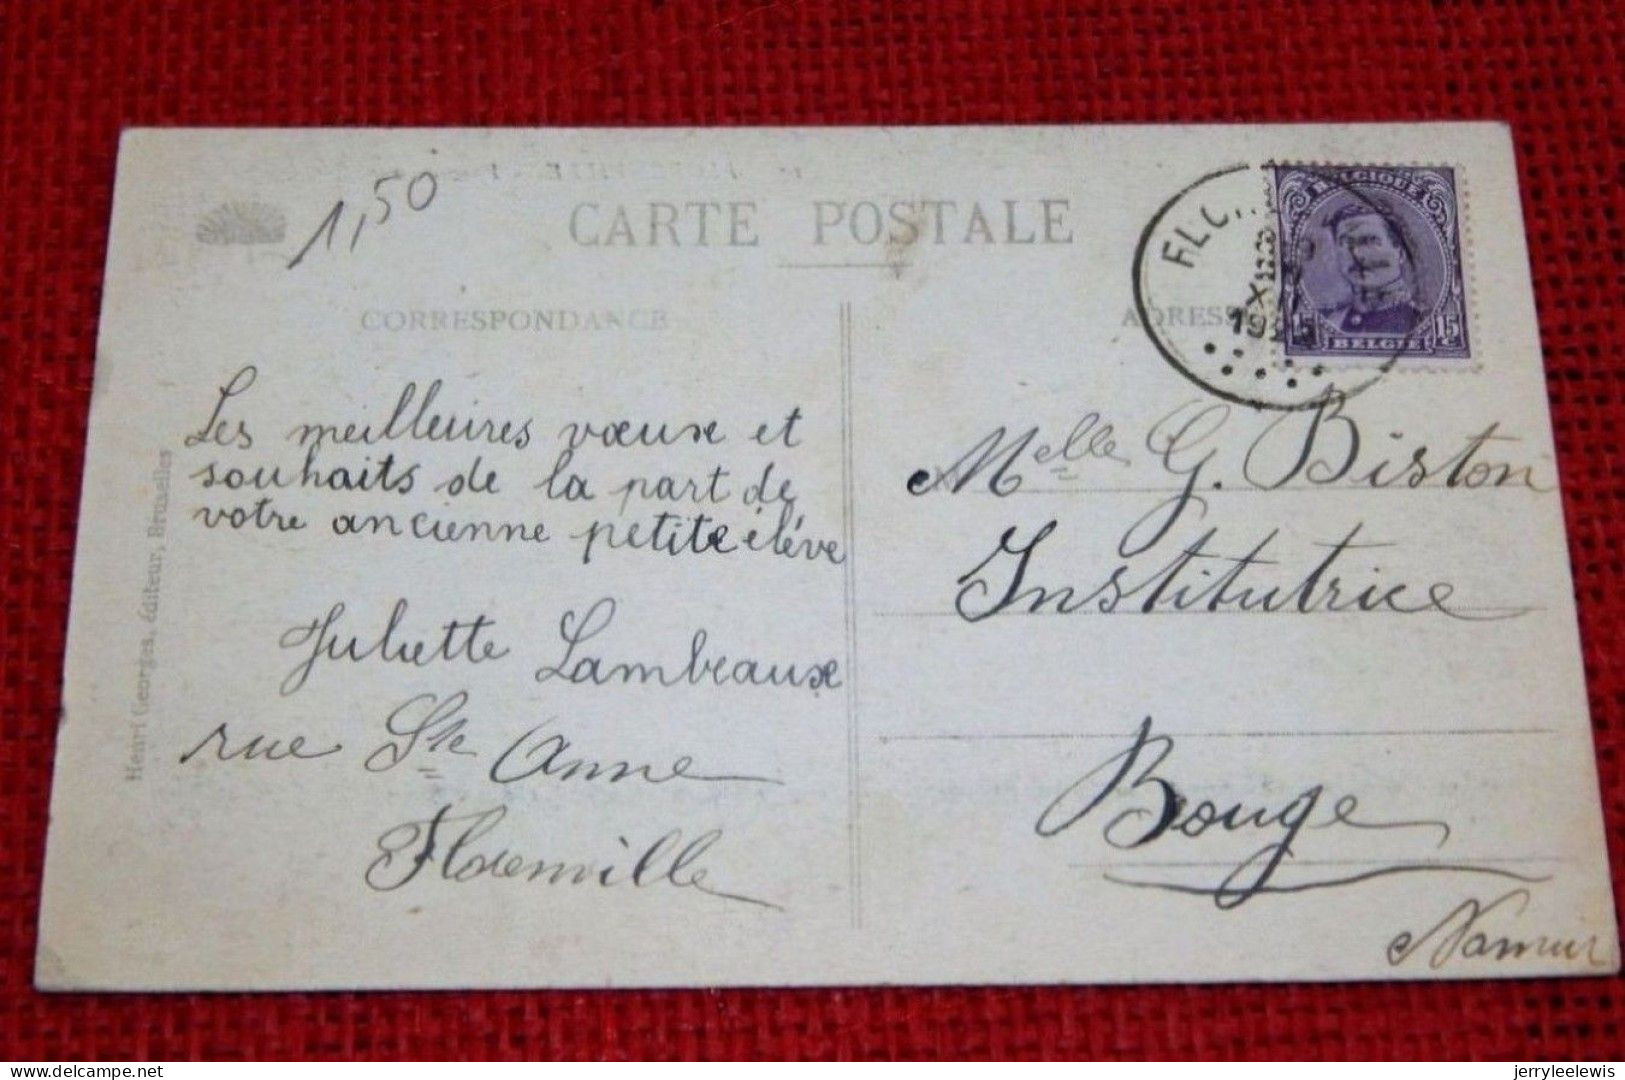 1,50
CARTE POSTALE
CORRESPONDANCE
ADRESSE
BELGIQUE
15 15
BELGIE
Les meilleures vœux et
souhaits de la part de
votre ancienne petite élève
Juliette Lambeaux
rue Ste Anne
Florenville
Melle G. Biston
Institutrice
Bouge
Namur
Henri Georges, éditeur, Bruxelles
delcampe.net
jerryleelewis